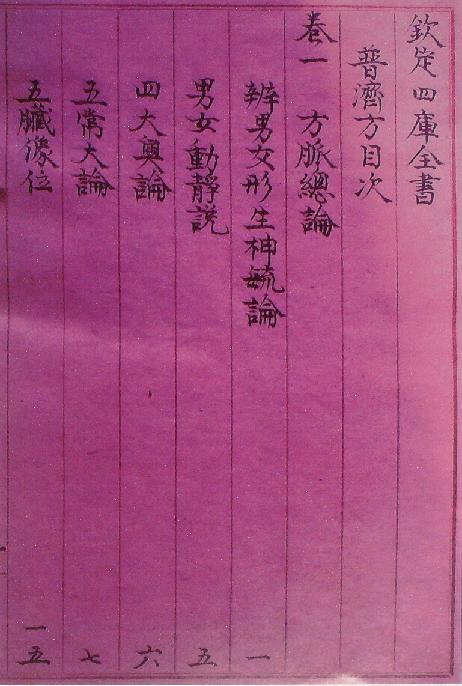 欽定四庫全書
普濟方目次
卷一 方脈總論
辨男女形生神毓論 一
男女動靜説 五
四大奥論 六
五常大論 七
五臟像位 一五